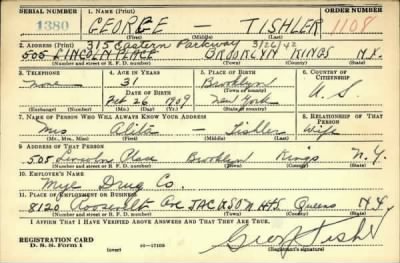 SERIAL NUMBER 1. NAME (Print) ORDER NUMBER
1380 GEORGE TISHLER 1108
(First) (Middle) (Last)
2. ADDRESS (Print) 315 Eastern Parkway 3/26/42
505 LINCOLN PLACE BROOKLYN KINGS N.Y.
(Number and street or R. F. D. number) (Town) (County) (State)
3. TELEPHONE 4. AGE IN YEARS 5. PLACE OF BIRTH 6. COUNTRY OF CITIZENSHIP
None 31 Brooklyn
DATE OF BIRTH (Town or county)
Oct 26 1909 New York U. S.
(Exchange) (Number) (Mo.) (Day) (Yr.) (State or country)
7. NAME OF PERSON WHO WILL ALWAYS KNOW YOUR ADDRESS 8. RELATIONSHIP OF THAT PERSON
Mrs Tishler Wife
(Mr., Mrs., Miss) (First) (Middle) (Last)
9. ADDRESS OF THAT PERSON
505 Lincoln Place Brooklyn Kings N.Y.
(Number and street or R. F. D. number) (Town) (County) (State)
10. EMPLOYER'S NAME
Drug Co.
11. PLACE OF EMPLOYMENT OR BUSINESS
8120 Roosevelt Ave JACKSON HTS Queens N.Y.
(Number and street or R. F. D. number) (Town) (County) (State)
I AFFIRM THAT I HAVE VERIFIED ABOVE ANSWERS AND THAT THEY ARE TRUE.
REGISTRATION CARD George Tishler
D. S. S. Form 1 (over) 16—17105 (Registrant's signature)